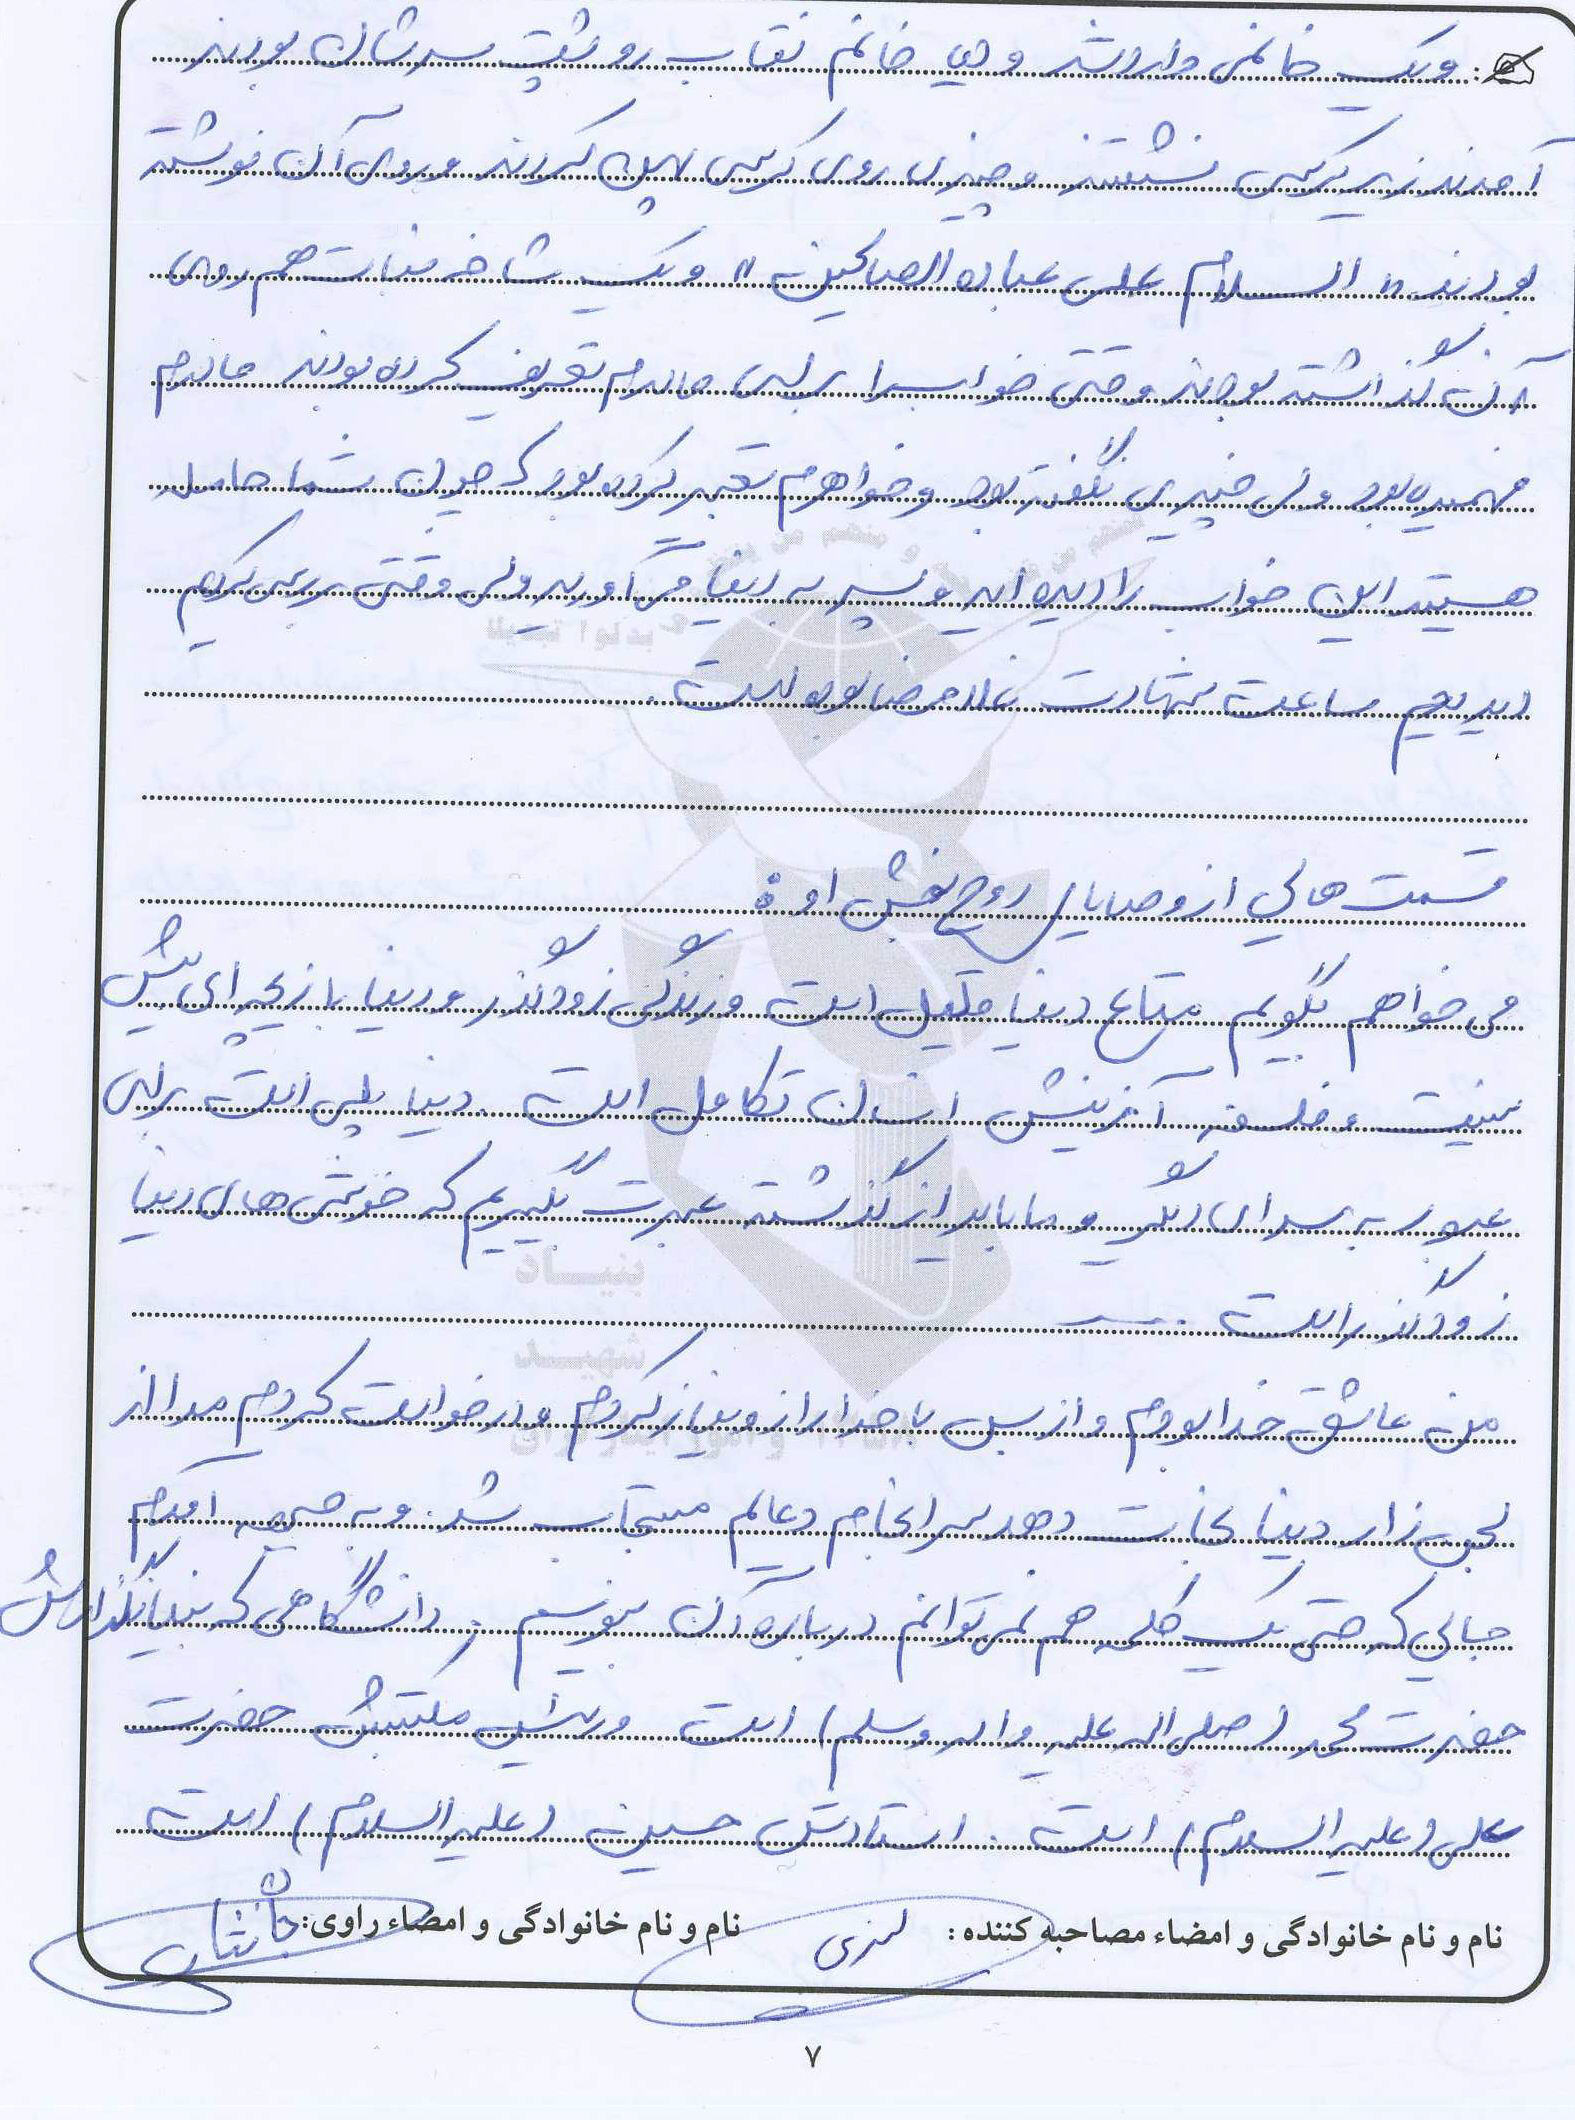 ویک خانمی وارد شد و این خانم نقاب رو پشت سرشان بودند
آمدند زیر کرسی نشستند و چیزی روی کرسی پهن کردند و روی آن نوشته
بودند " السلام علی عباد الصالحین " و یک شاخه نبات هم روی
آن گذاشته بودند وقتی خواب را برای مادرم تعریف کرده بودند مادرم
فهمیده بود ولی چیزی نگفته بود و خواهرم تعبیر کرده بود که چون شما حامله
هستید این خواب را دیده اید و پسر به دنیا می آورید ولی وقتی بررسی کردیم
دیدیم ساعت شهادت غلامرضا بوده است .
قسمت هایی از وصایای روح بخش او :
می خواهم بگویم متاع دنیا قلیل است و زندگی زودگذر و دنیا بازیچه ای بیش
نیست و فلسفه آفرینش انسان تکامل است . دنیا پلی است برای
عبور به سرای دیگر و ما باید از گذشته عبرت بگیریم که خوشی های دنیا
زودگذر است .
من عاشق خدا بودم و از بس با خدا راز و نیاز کردم و درخواست کردم مرا از
لجن زار دنیا نجات دهد سرانجام دعایم مستجاب شد . و به جبهه آمدم
جایی که حتی یک کلمه هم نمی توانم درباره آن بنویسم . دانشگاهی که بنیانگذارش
حضرت محمد (صلی الله علیه و اله وسلم) است و رئیس مکتبش حضرت
علی (علیه السلام) است . استادش حسین (علیه السلام) است
نام و نام خانوادگی و امضاء مصاحبه کننده : نام و نام خانوادگی و امضاء راوی:
۷
بنیاد
شهید